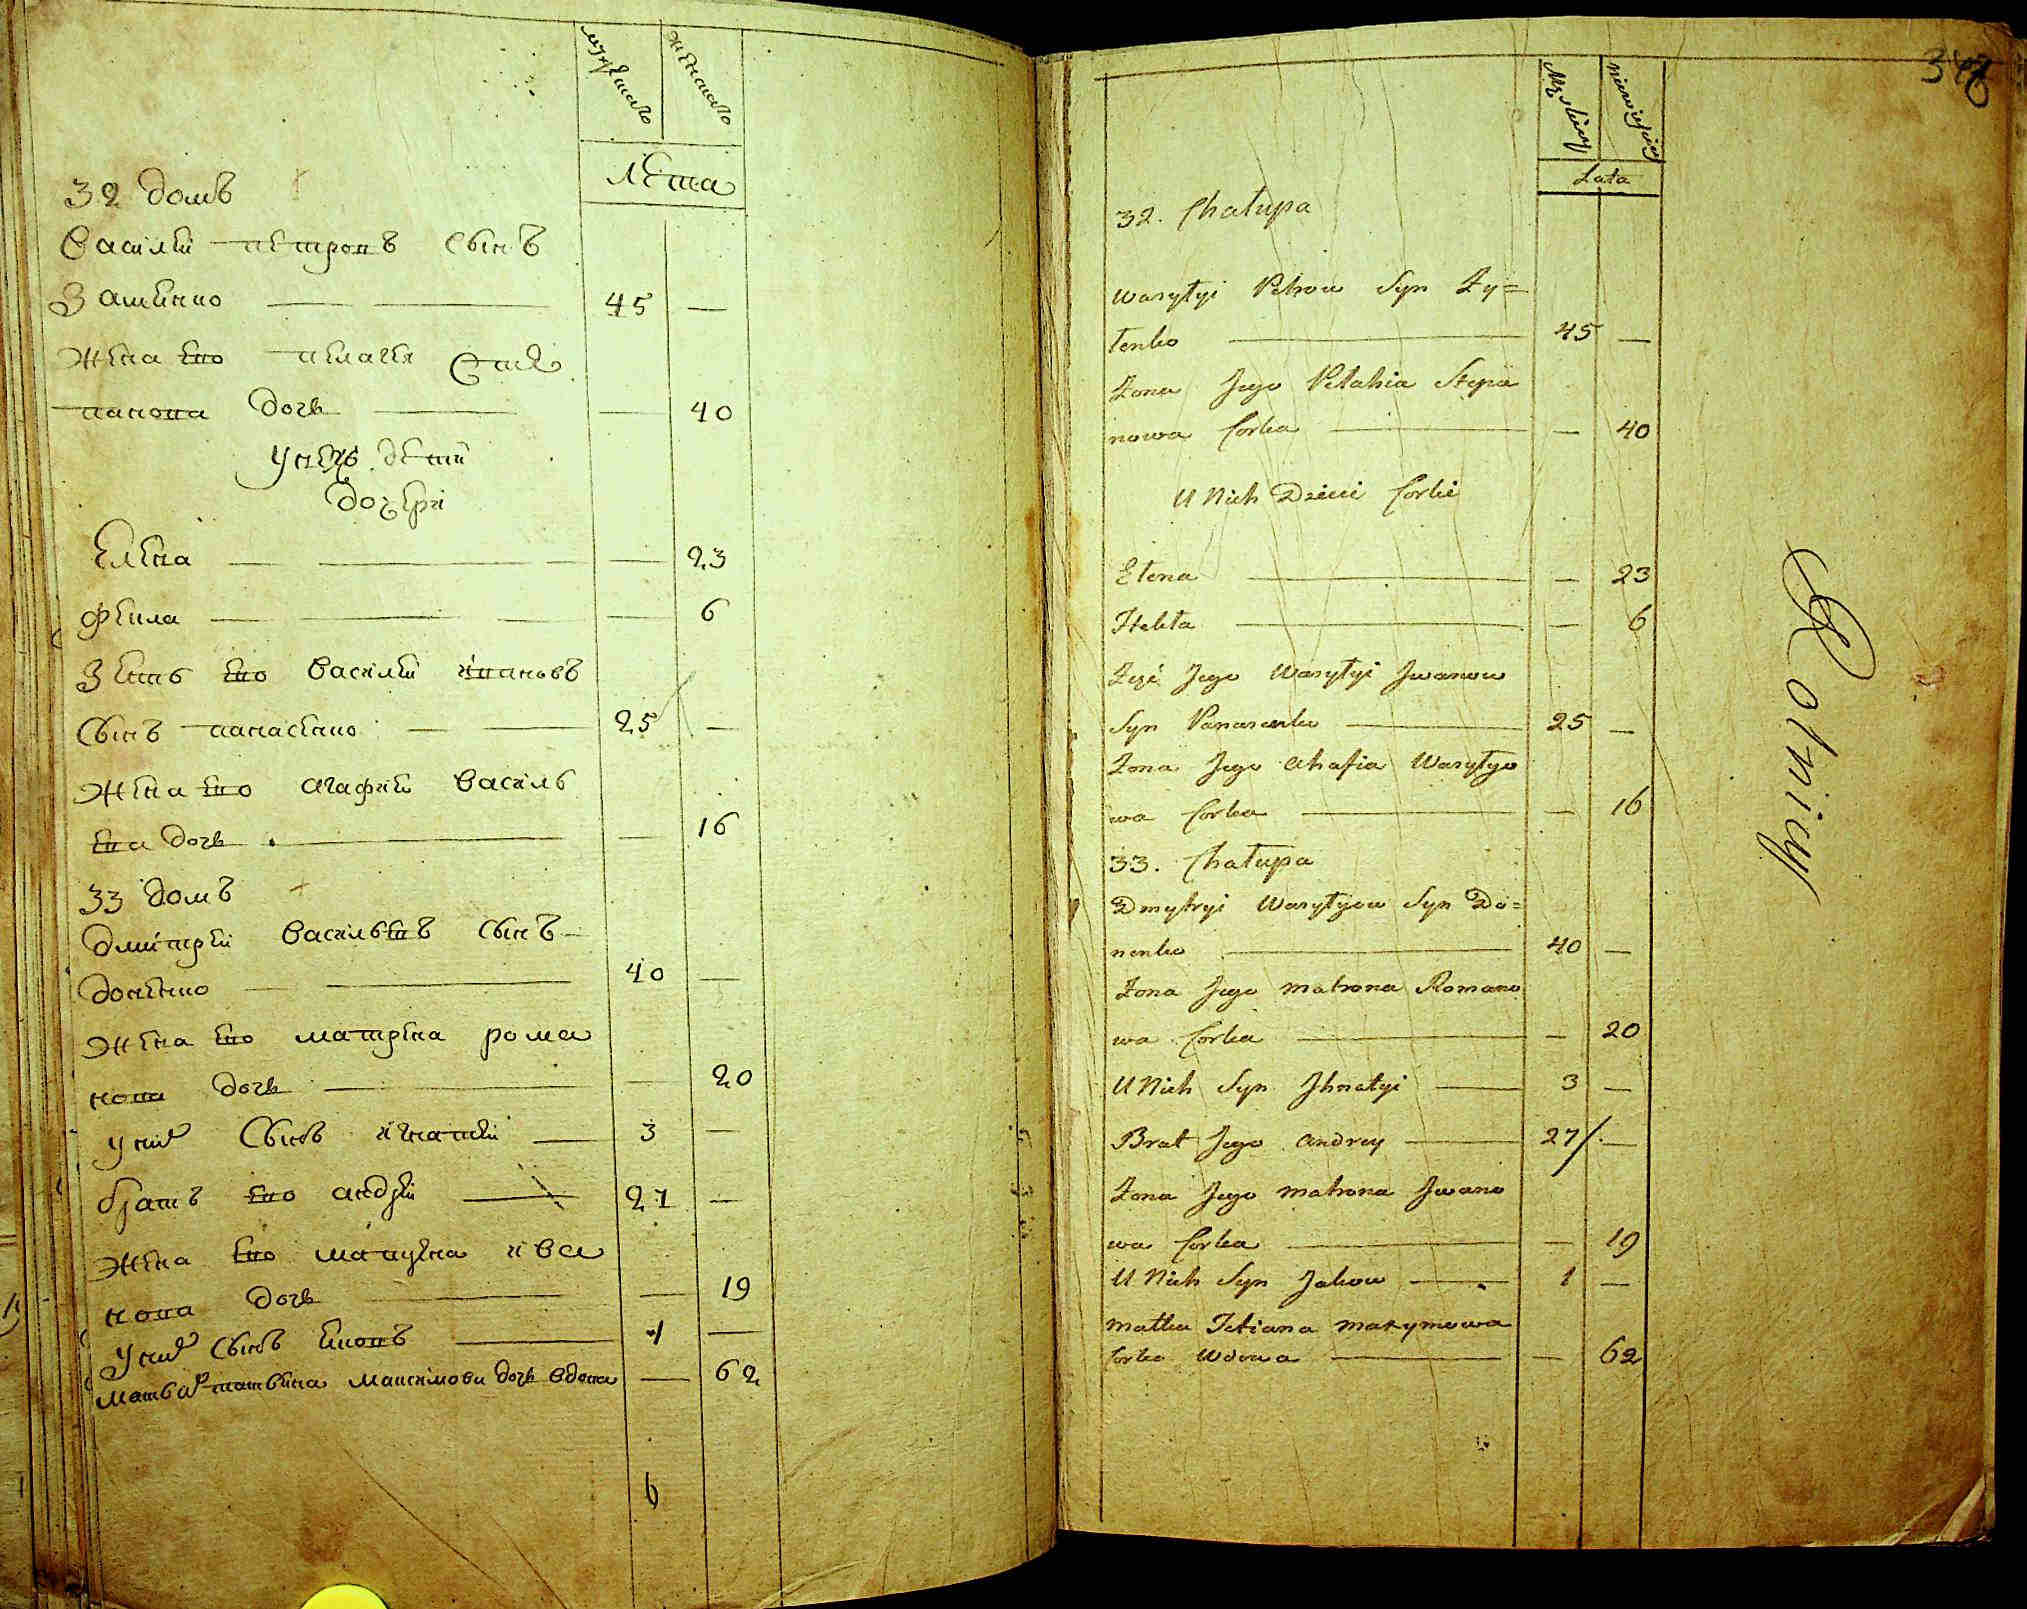 мужеска женска
лета
32 домъ
Василей петровъ сынъ
45 —
жена ево пелагея Сте
панова дочь — — 40
у нихъ дети
дочери
Елена — — 23
фекла — — 6
Зеть ево василей ивановъ
сынъ панасенко — 25 —
жена ево агафия василь
ева дочь — — 16
33 домъ
дмитрей васильевъ сынъ
доненко — 40 —
жена ево матрена рома
нова дочь — — 20
у них сынъ игнатей — 3 —
братъ ево андрей — 27 —
жена ево матрена ива
нова дочь — — 19
у них сынъ яковъ — 1 —
мать татьяна максимова дочь вдова — 62
6
348
Męskiey Niewieściey
Lata
32. Chałupa
Wasyłyi Petrow Syn Zy=
tenko — 45 —
Żona Jego Pełahia Stepa
nowa Corka — — 40
U Nich Dzieci Corki
Ełena — — 23
Tekła — — 6
Zęć Jego Wasyłyi Jwanow
Syn Panasenko — 25 —
Żona Jego Ahafia Wasyłyo
wa Corka — — 16
33. Chałupa
Dmytryi Wasyłyow Syn Do=
nenko — 40 —
Żona Jego Matrona Romano
wa Corka — — 20
U Nich Syn Jhnatyi — 3 —
Brat Jego Andrey — 27 —
Żona Jego Matrona Jwano
wa Corka — — 19
U Nich Syn Jakow — 1 —
Matka Tetiana Maxymowa
Corka Wdowa — — 62
Rotnicy